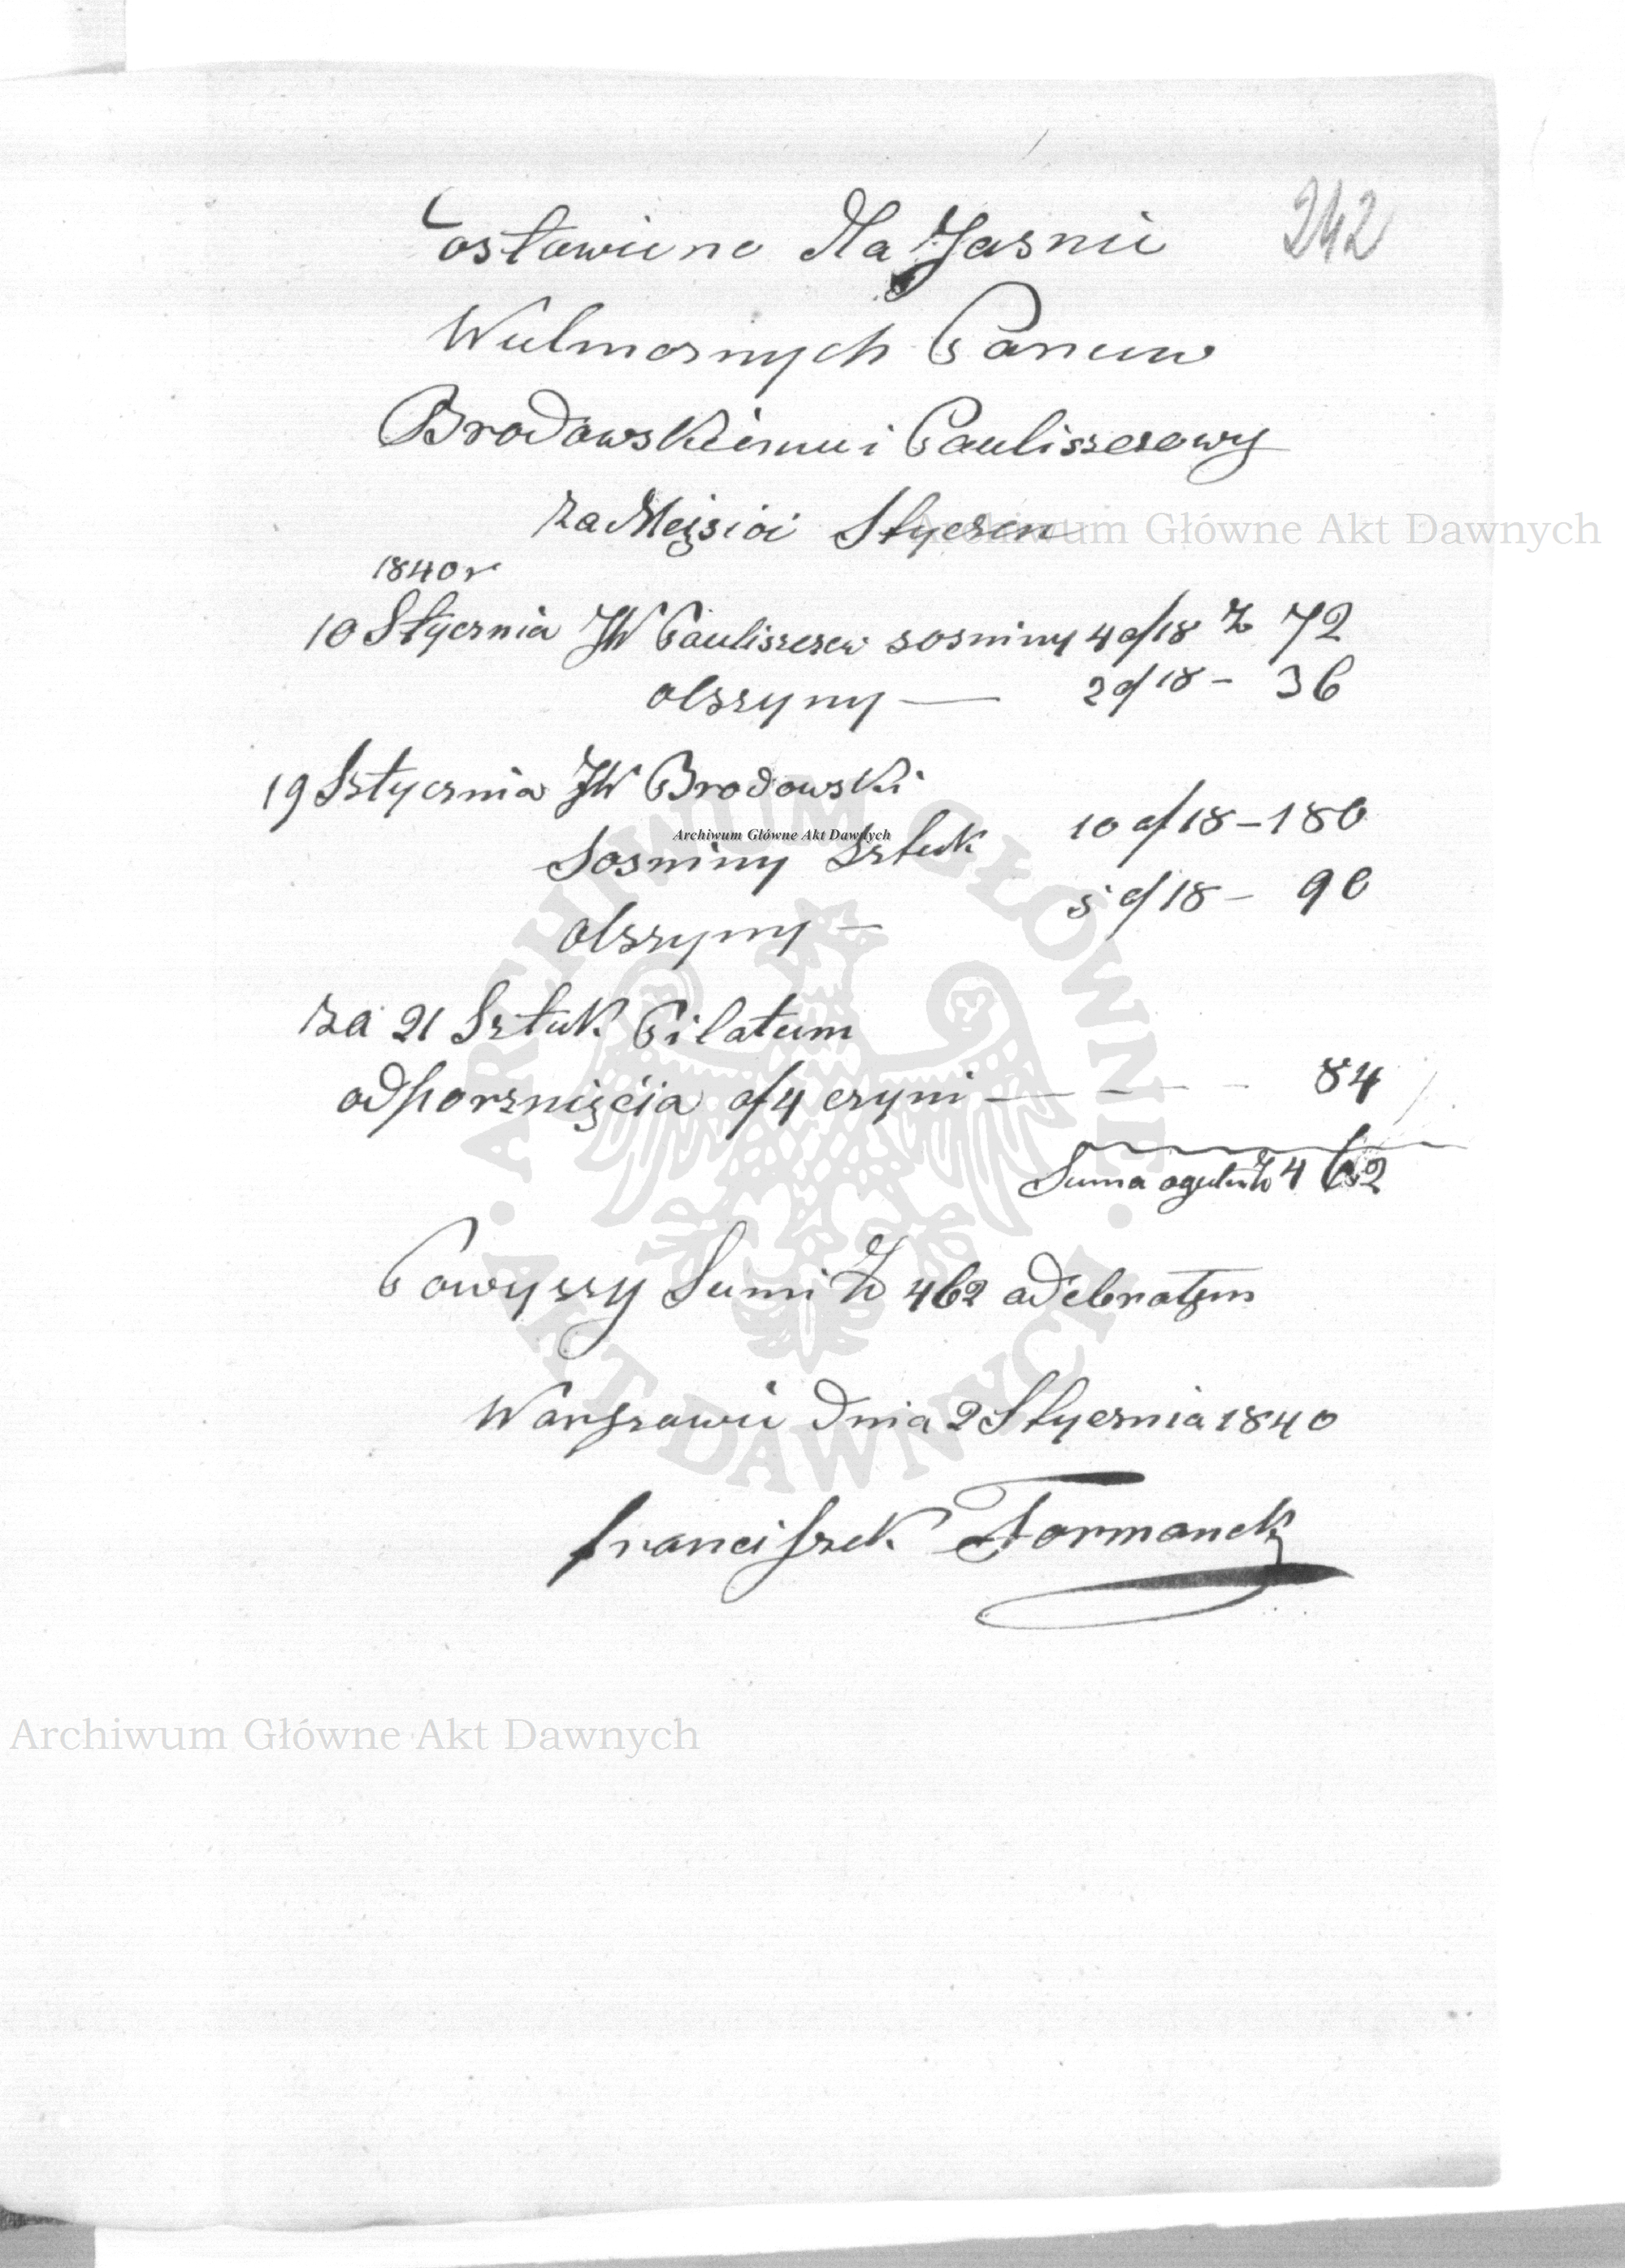 242
Postawiene Dla Jasnie
Wielmoznych Panuw
Brodowskiemu i Paulisserowy
za Mejsioi Styczen
Archiwum Główne Akt Dawnych
1840 r
10 Stycznia JW Paulisserow sosniny 4 a/18 Zł 72
olszyny — 2 a/18 - 36
19 Sztycznia JW Brodowski
Archiwum Główne Akt Dawnych
Sosniny Sztuk 10 a/18 - 180
olszyny — 5 a/18 - 90
za 21 Sztuk Pilatum
od porznięcia a/4 czyni — — — 84
Suma ogulna Zł 462
Powyszy Sumi Zł 462 odebrałem
Warszawie dnia 2 Stycznia 1840
Franciszek Formanek
Archiwum Główne Akt Dawnych
ARCHIWUM GŁÓWNE AKT DAWNYCH